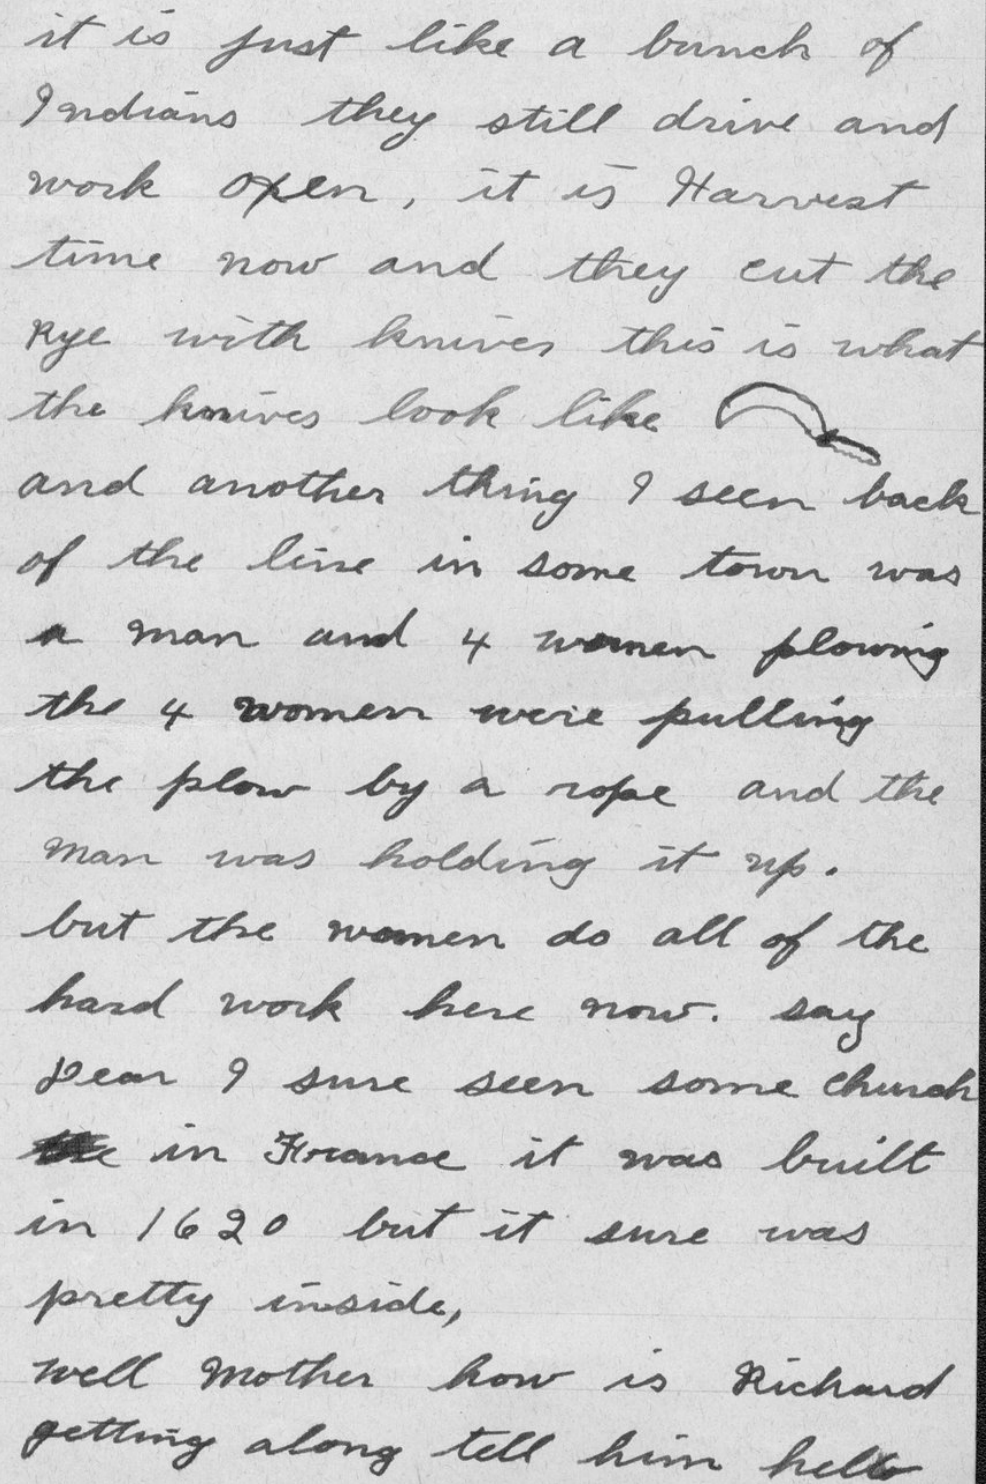 it is just like a bunch of
Indians they still drive and
work open, it is Harvest
time now and they cut the
Rye with knives this is what
the knives look like
and another thing I seen back
of the line in some town was
a man and 4 women plowing
the 4 women were pulling
the plow by a rope and the
man was holding it up.
but the women do all of the
hard work here now. say
Dear I sure seen some church
in France it was built
in 1620 but it sure was
pretty inside,
well Mother how is Richard
getting along tell him hello